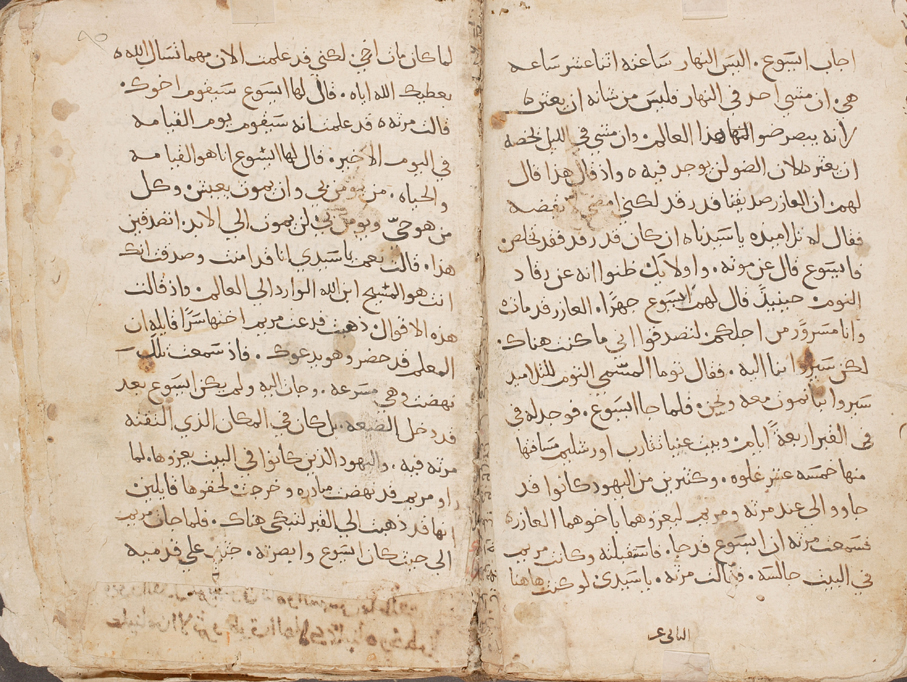 اجاب ايسوع . اليس النهار ساعته اثنا عشر ساعه
هي . ان مشى احد في النهار فليس من شانه ان يعثره
لانه يبصر ضو النهار هذا العالم . وان مشى في الليل لخصه
ان يعثر لان الضو لن يوجد فيه ه واذ قال هذا قال
لهم . ان العازر صديقنا قد رقد لكني امضي
فقال له تلاميده يا سيدناه ان كان قد رقد فقد تخلص .
فايسوع قال عن موته . واولايك ظنوا انه عن رقاد
النوم . حينيذ قال لهم ايسوع جهرًا . العازر قد مات
وانا مسرور من اجلكم لتصدقوا اني ما كنت هناك .
لكن سيروا بنا اليه . فقال توما المسمى التوم للتلاميد
سيروا بنا نموت معه ونحن . فلما جا ايسوع . فوجد له في
في القبر اربعة ايام . وبيت عنيا تقارب اورشليم مسافتها
منها خمسه عشر غلوه . وكثيرين من اليهود كانوا قد
جاووا الى عند مرته ومريم ليعزوهما باخوهما العازر ه
فسمعت مرته ان ايسوع قد جا . فاستقبلته وكانت مريم
في البيت جالسه . فقالت مرته . يا سيدي لو كنت هاهنا
لما كان مات اخي . لكني قد علمت الان مهما تسال الله ه
يعطيك الله اياه . قال لها ايسوع سيقوم اخوك .
قالت مرته ه قد علمت انه سيقوم يوم القيامه
في اليوم الاخير . قال لها ايسوع انا هو القيامه
والحياه . من يومن بي وان يموت يعيش . وكل
من هو حيّ ويومن بي لن يموت الى الابد . اتصدقين
هذا . قالت نعم يا سيدي انا قد امنت وصدقت انك
انت هو المسيح ابن الله الوارد الى العالم . واذ قالت
هذه الاقوال . ذهبت فدعت مريم اختها سرًا قايله ان
المعلم قد حضر وهو يدعوك . فاذ سمعت تلك
نهضت وهي مسرعه . وجات اليه ولم يكن ايسوع بعد
قد دخل الضيعه . بل كان في المكان الذي التقته
مرته فيه . واليهود الذين كانوا في البيت يعزوها . لما
راو مريم قد نهضت مبادره وخرجت لحقوها قايلين
انها قد ذهبت الى القبر لتبكي هناك . فلما جات مريم
الى حيث كان ايسوع وابصرته . خرت على قدميه